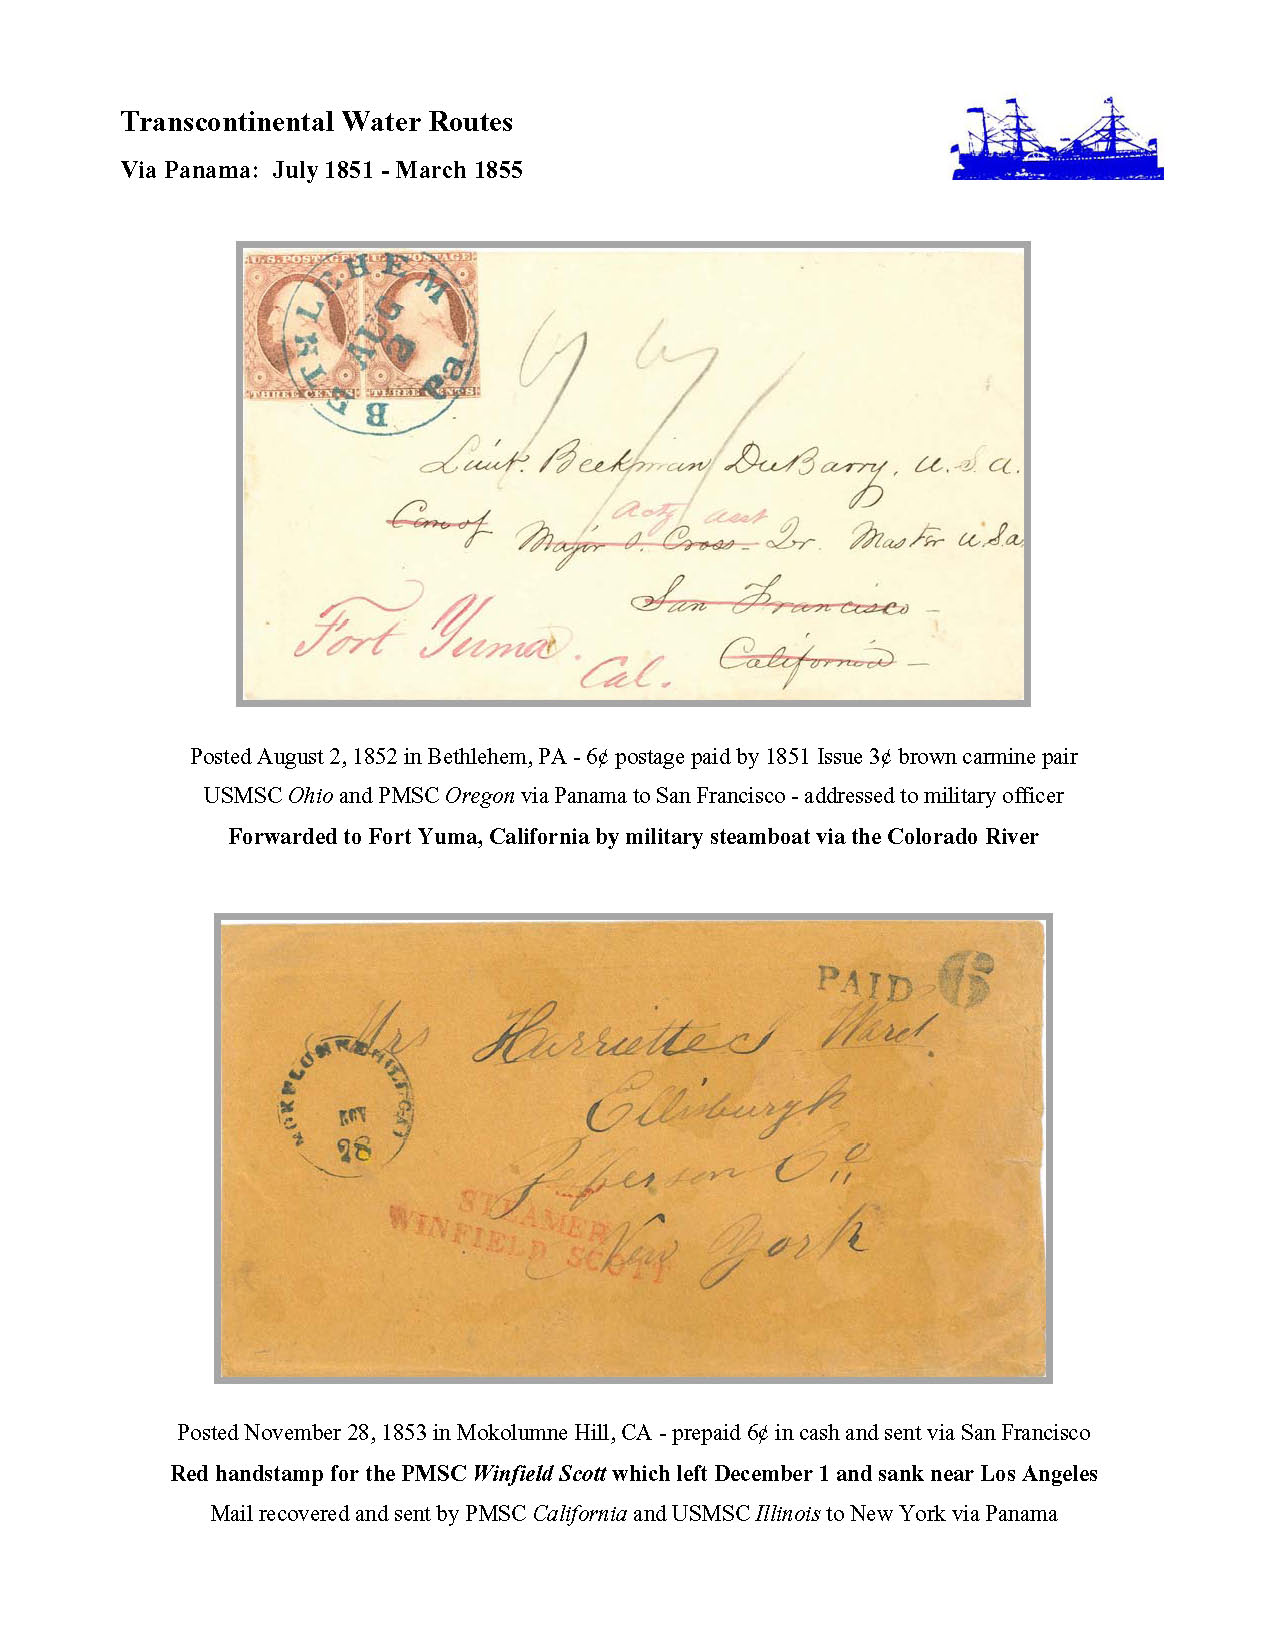 Transcontinental Water Routes
Via Panama: July 1851 - March 1855
U.S. POSTAGE
POSTAGE
THREE CENTS
THREE CENTS
BETHLEHEM Pa.
AUG
2
Lieut. Beekman DuBarry, U.S.A.
Care of
Acty Asst
Major O. Cross - Qr. Master U.S.a
San Francisco -
California -
Fort Yuma.
Cal.
Posted August 2, 1852 in Bethlehem, PA - 6¢ postage paid by 1851 Issue 3¢ brown carmine pair
USMSC Ohio and PMSC Oregon via Panama to San Francisco - addressed to military officer
Forwarded to Fort Yuma, California by military steamboat via the Colorado River
PAID 6
Mrs Harriette S Ward.
MOKELUMNE HILL CAL
NOV
28
Ellisburgh
Jefferson Co,,
STEAMER
WINFIELD SCOTT
New York
Posted November 28, 1853 in Mokolumne Hill, CA - prepaid 6¢ in cash and sent via San Francisco
Red handstamp for the PMSC Winfield Scott which left December 1 and sank near Los Angeles
Mail recovered and sent by PMSC California and USMSC Illinois to New York via Panama